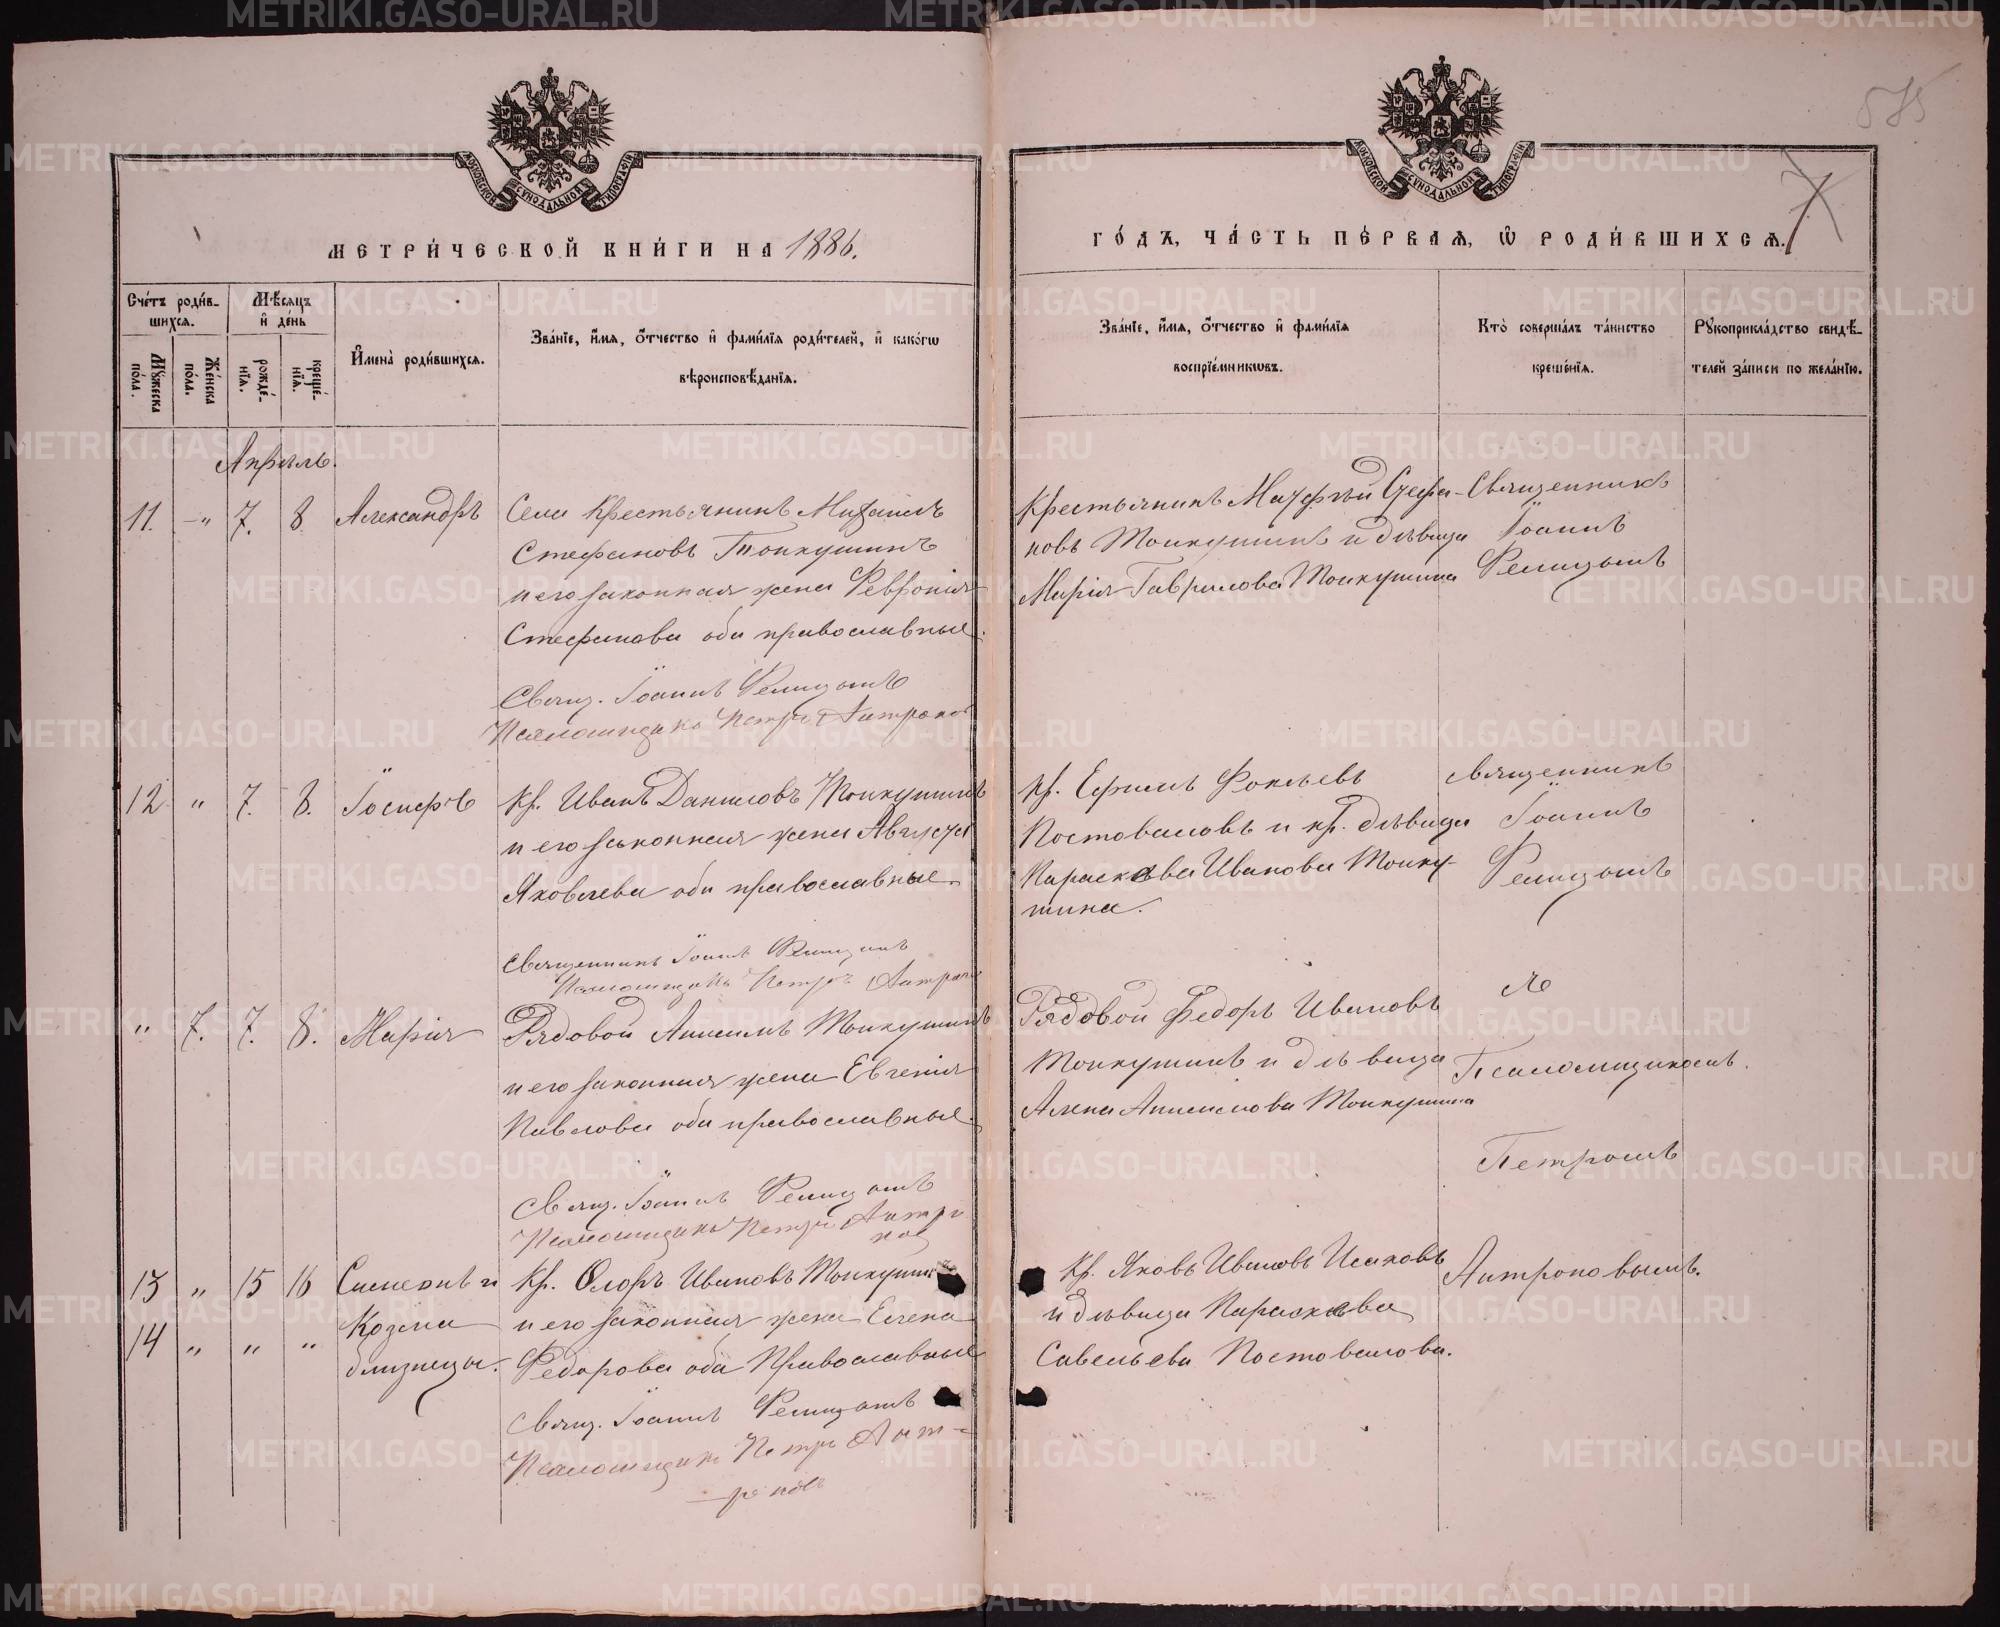 МЕТРИ́ЧЕСКОЙ КНИ́ГИ НА 1886.
ГО́ДЪ, ЧА́СТЬ ПЕ́РВАЯ, Ѡ РОДИ́ВШИХСЯ.
Сче́тъ роди́в-
шихся.
Мѣ́сяцъ
и де́нь
Му́жеска
по́ла.
Же́нска
по́ла.
рожде́-
нїя.
креще́-
нїя.
Имена̀ роди́вшихся.
Зва́нїе, и́мя, ѻ́тчество и фами́лїя роди́телей, и како́гѡ
вѣроисповѣ́данїя.
Зва́нїе, и́мя, ѻ́тчество и фами́лїя
воспрїе́мникѡвъ.
Кто̀ соверша́лъ та́инство
креще́нїя.
Рꙋкоприкла́дство свидѣ́-
телей за́писи по жела́нїю.
Апрѣль.
11. " 7. 8 Александръ
Села Крестьянинъ Михаилъ
Стефановъ Тонкушинъ
и его законная жена Февронія
Стефанова оба православные.
Свящ. Іоаннъ
Псаломщикъ Петръ Антроповъ
Крестьянинъ Матфѣй Стефа-
новъ Тонкушинъ и дѣвица
Марія Гаврилова Тонкушина
Священникъ
Іоаннъ
12 " 7. 8. Іосифъ
Кр. Иванъ Даниловъ Тонкушинъ
и его законная жена Августа
Яковлева оба православные.
Священникъ Іоаннъ
Псаломщикъ Петръ Антропов
Кр. Ефимъ Фокѣевъ
Постоваловъ и кр. дѣвица
Параскева Иванова Тонку-
шина.
Священникъ
Іоаннъ
" 7. 7. 8. Марія
Рядовой Анисимъ Тонкушинъ
и его законная жена Евгенія
Павлова оба православные.
Свящ. Іоаннъ
Псаломщикъ Петръ Антро
пов
Рядовой Федоръ Ивановъ
Тонкушинъ и дѣвица
Анисимова Тонкушина
Съ
Псаломщикомъ
Петромъ
Антроповымъ.
13 " 15 16 Симеонъ и
14 " " " Козма
близнецы.
Кр. Флоръ Ивановъ Тонкушин
и его законная жена Елена
Федорова оба Православные
Свящ. Іоаннъ
Псаломщикъ Петръ Ант-
роповъ
Кр. Яковъ Ивановъ Исаковъ
и дѣвица Параскева
Савельева Постовалова.